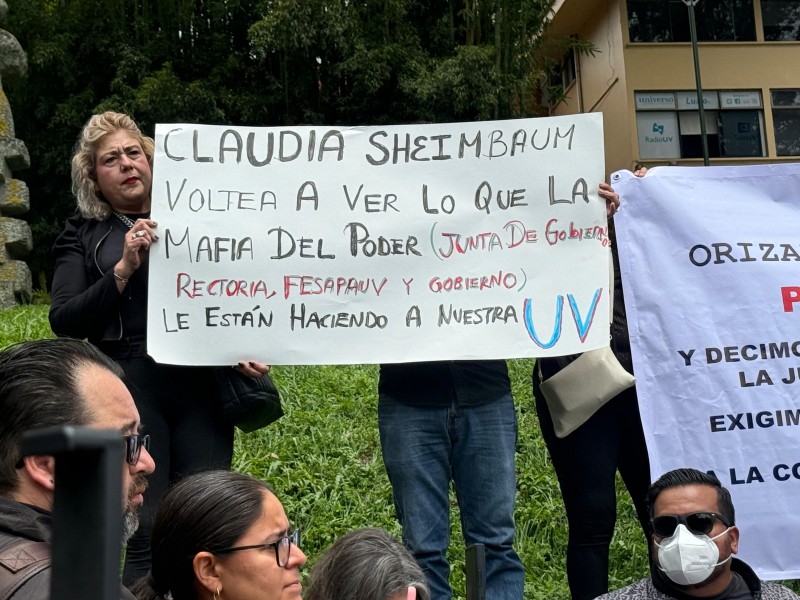 CLAUDIA SHEIMBAUM
VOLTEA A VER LO QUE LA
MAFIA DEL PODER (JUNTA DE GOBIERNO
RECTORIA, FESAPAUV Y GOBIERNO)
LE ESTÁN HACIENDO A NUESTRA UV
ORIZA
P
Y DECIMO
LA JU
EXIGIM
A LA CO
universo
Radio UV